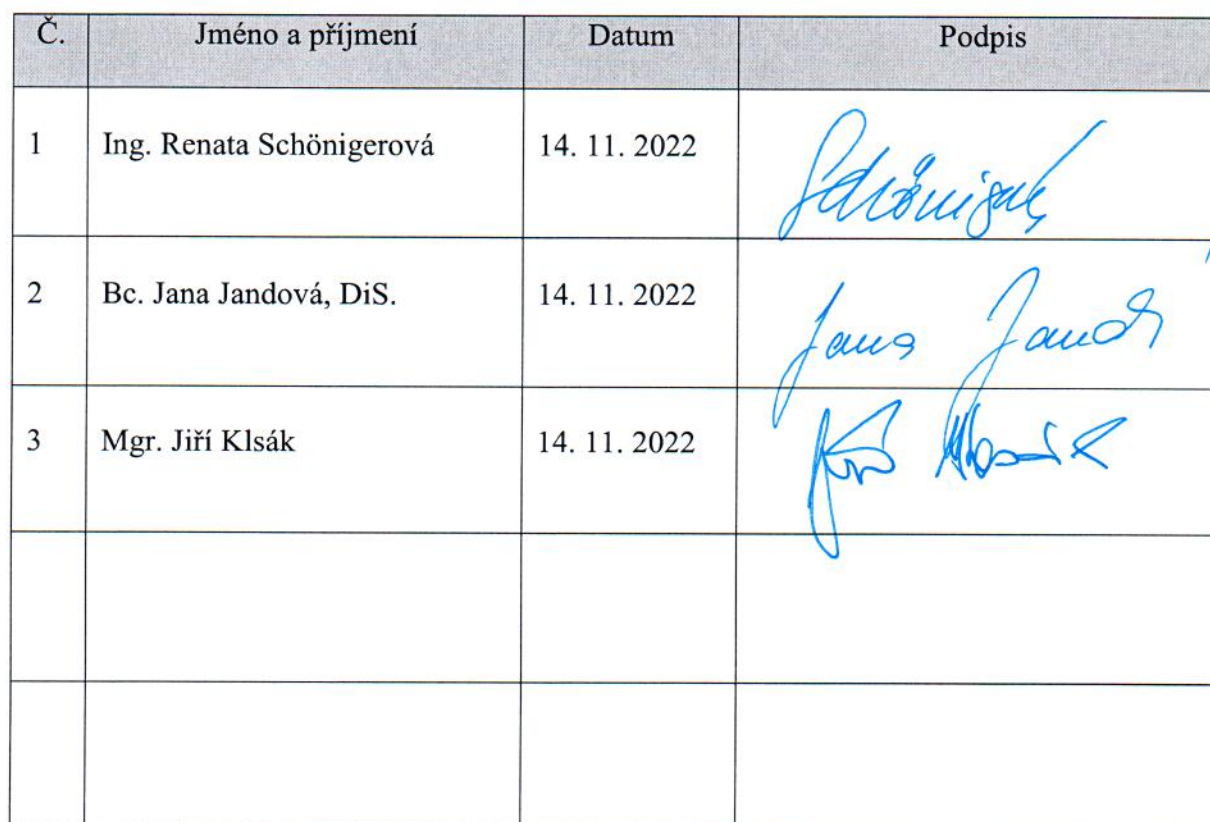 Č. Jméno a příjmení Datum Podpis
1 Ing. Renata Schönigerová 14. 11. 2022
2 Bc. Jana Jandová, DiS. 14. 11. 2022 Jana
3 Mgr. Jiří Klsák 14. 11. 2022